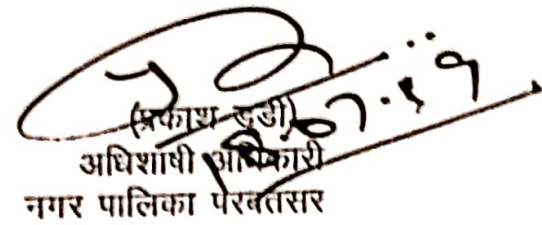 (प्रकाश डूडी)
अधिशाषी अधिकारी
नगर पालिका परबतसर